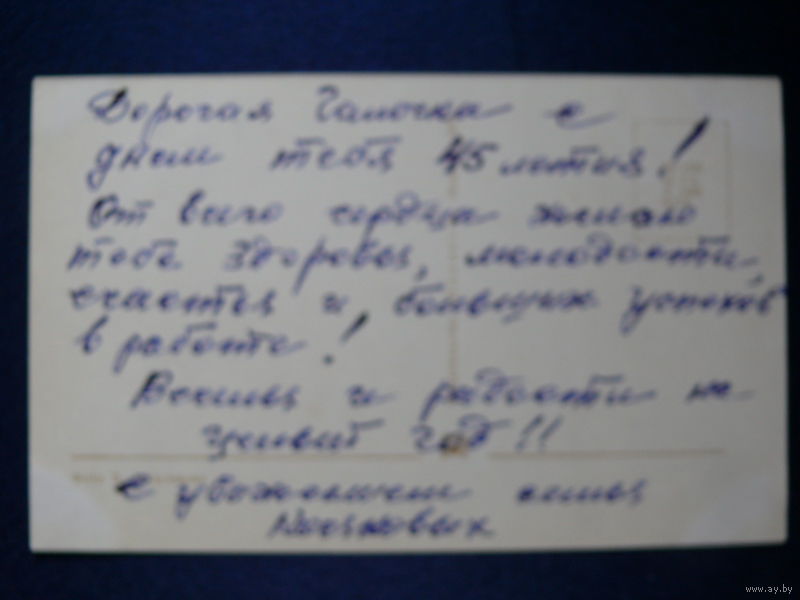 Дорогая Галочка с
днем тебя 45 летия!
От всего сердца желаю
тебе здоровья, молодости,
счастья и больших успехов
в работе!
Весны и радости на
целый год!!
С уважением семья
www.ay.by